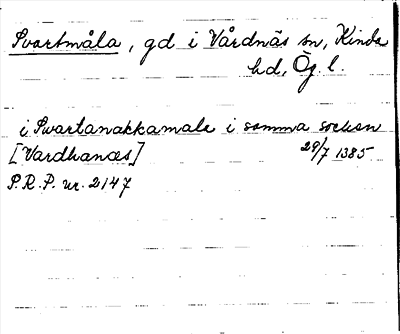 Svartmåla, gd i Vårdnäs sn, Kinda
hd, Ög. l.
i Swartanakkamala i samma socken
[Vardhanæs] 29/7 1385
P.R.P. nr. 2147